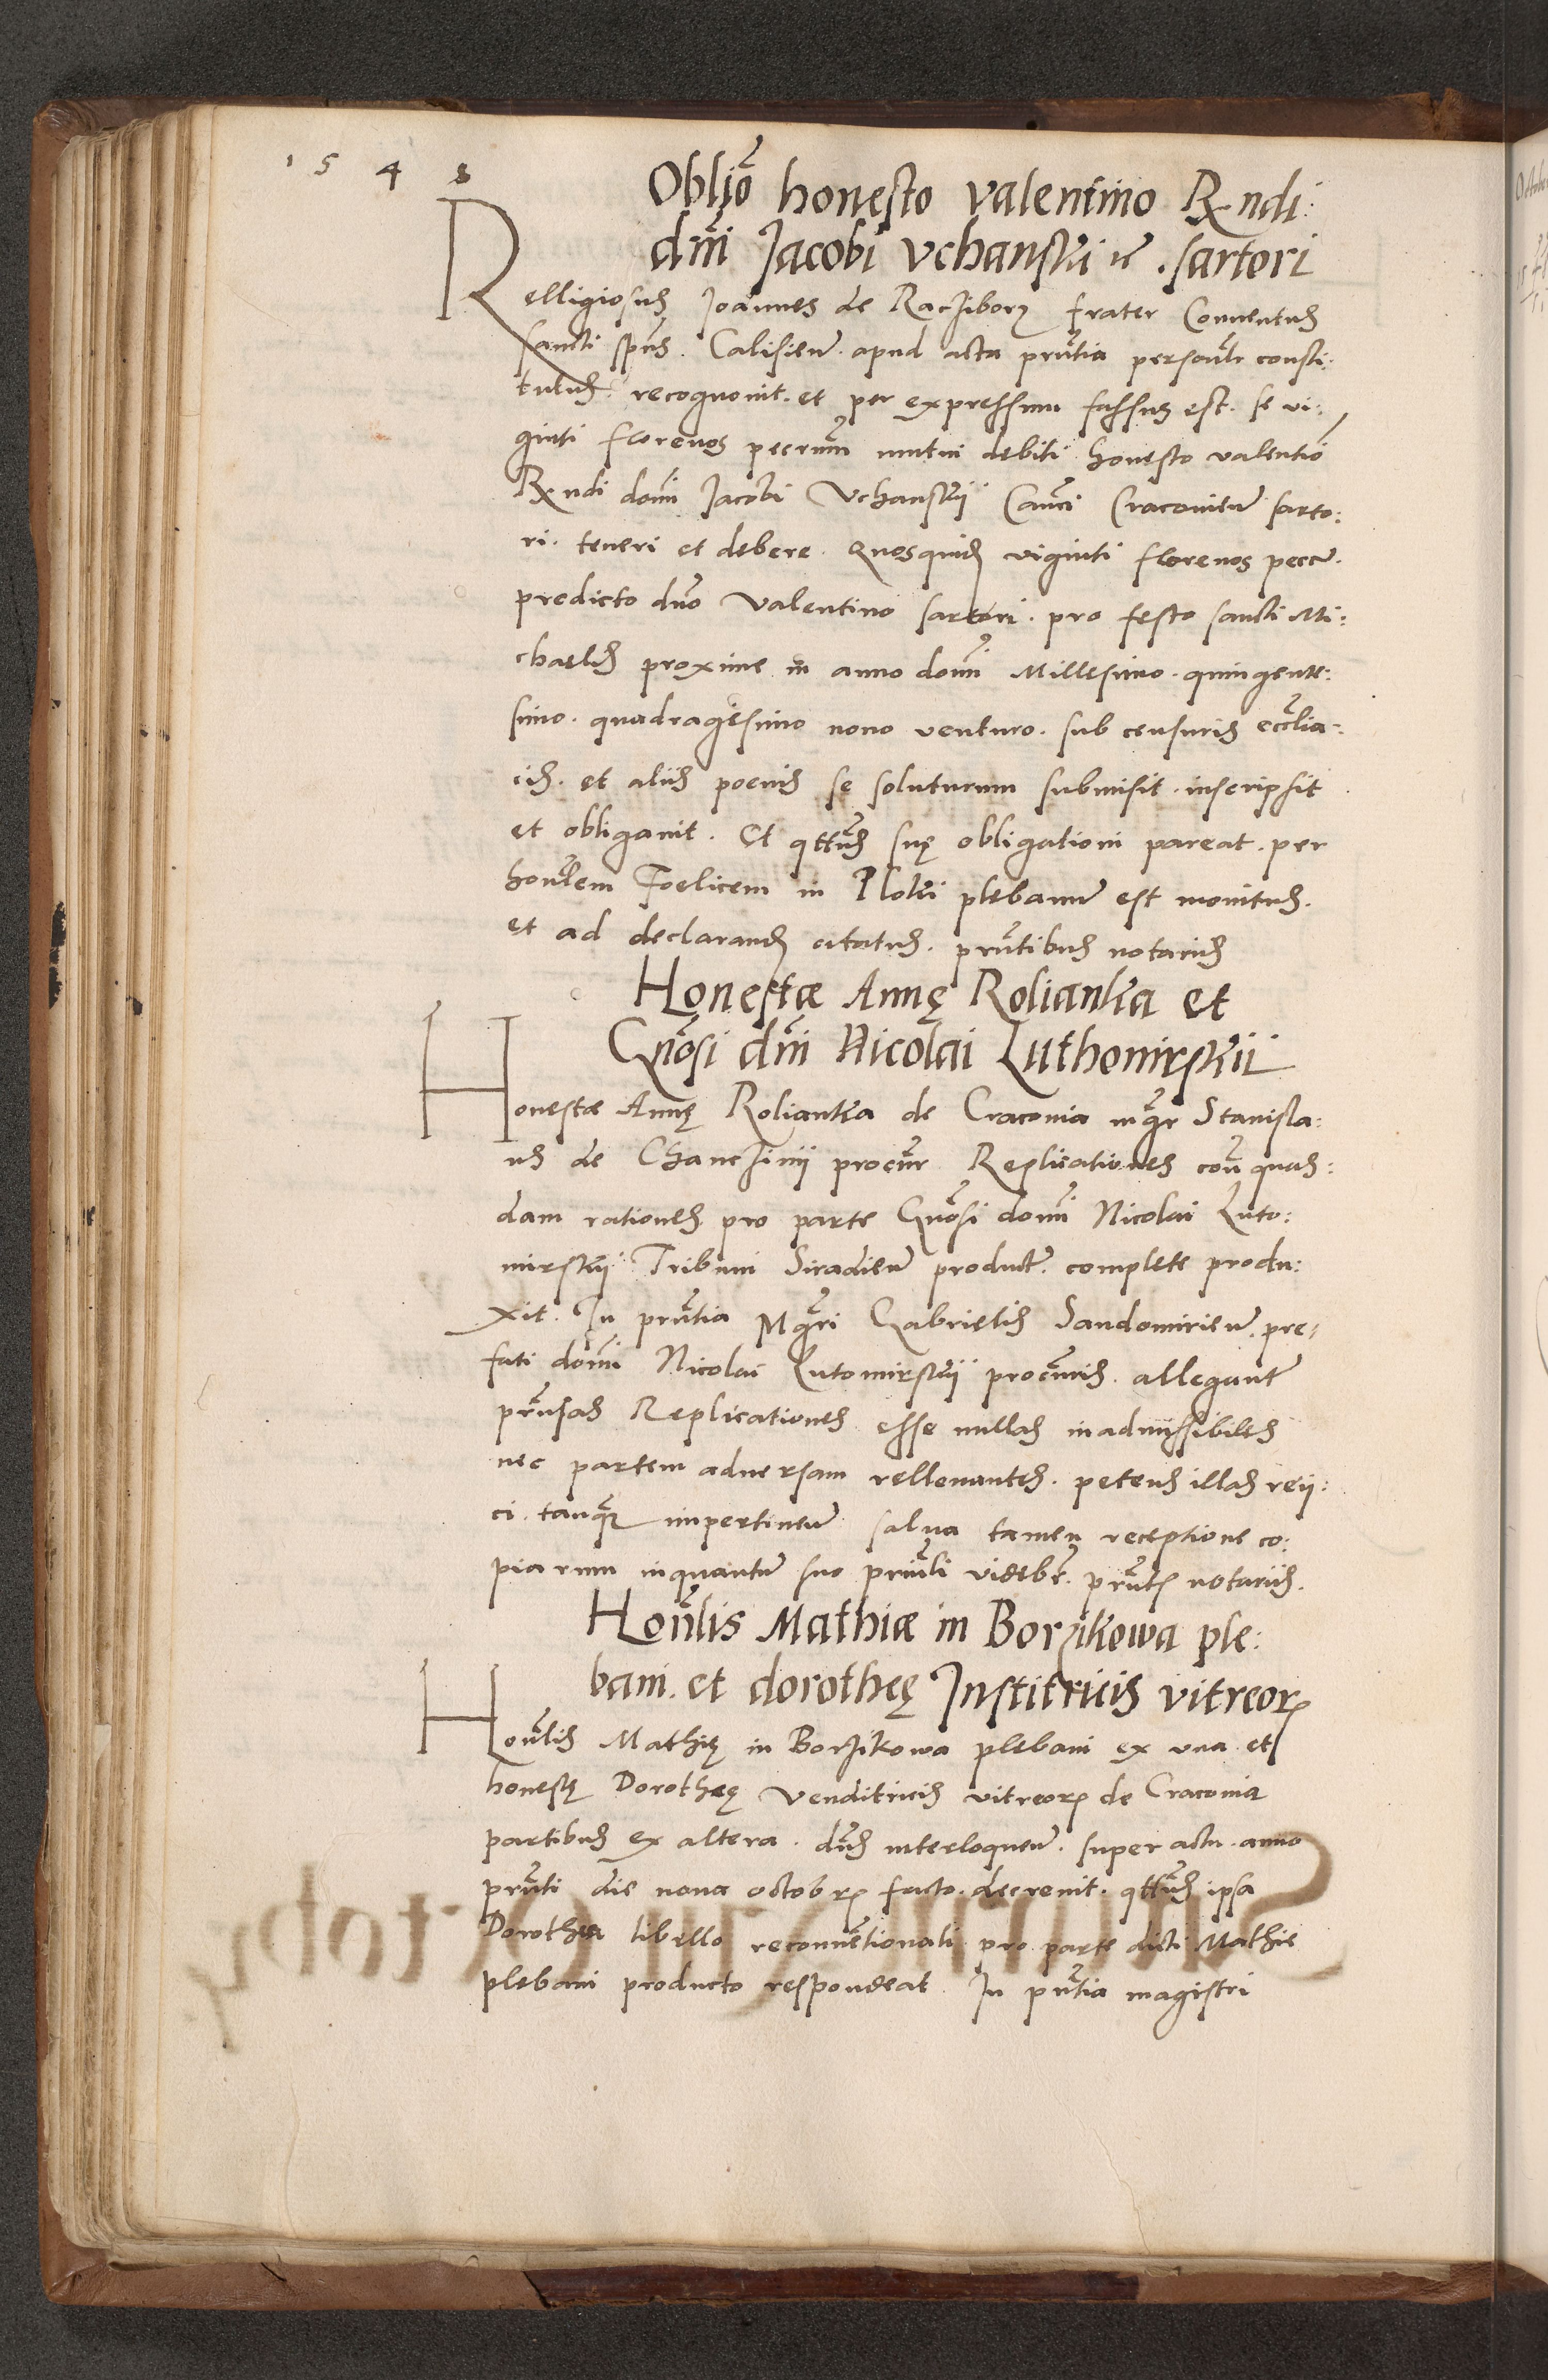 1548
Oblio honesto Valentino Rndi:
dni Jacobi Vchanskii etc. sartori
Relligiosus Joannes de Racziborz frater Conuentus
sancti spus. Calisien. apud acta pntia personlr consti:
tutus. recognouit. et per expressum fassus est. se vi:
ginti florenos pecrum mutui debiti honesto valentio
Rndi domi Jacobi Vchanskii Canci Cracouien sarto:
ri. teneri et debere. Quosquid viginti florenos peccu.
predicto dno Valentino sartori. pro festo sancti Mi:
chaelis proxime in anno domi Millesimo. quingente:
simo. quadragesimo nono venturo. sub censuris ecclia:
cis. et aliis poenis se soluturum submisit. inscripsit
et obligauit. Et qttus suę obligationi pareat. per
honlem Foelicem in Ploki plebanum est monitus.
et ad declarand citatus. pntibus notariis
Honestæ Annę Rolianka et
Gnosi dni Nicolai Luthomirskii
Honestæ Annę Rolianka de Cracouia mgr Stanisla:
us de Chanczinii procur Replicationes con quas:
dam rationes pro parte Gnosi domi Nicolai Luto:
mirskii Tribuni Siradien product. complete produ:
xit. In pntia Mgri Gabrielis Sandomirien. pre:
fati domi Nicolai Lutomirskii procuris. allegant
prensas Replicationes esse nullas inadmissibiles
nec partem aduersam rellenantes. petens illas reii:
ci. tanq impertinen salua tamen receptione co:
piarum inquantum suo princli videbr. pnt notariis.
Honlis Mathiæ in Borzikowa ple:
bani. et dorotheę Institricis vitreor
Honlis Mathię in Borzikowa plebani ex vna et
honestę Dorotheę Venditricis vitreor de Cracouia
partibus ex altera. dus interloquen. super actu. anno
pnti die nona octobr facto. decreuit. qttus ipsa
Dorothea libello reconuentionali pro parte dicti Mathie
plebani producto respondeat. In pntia magistri